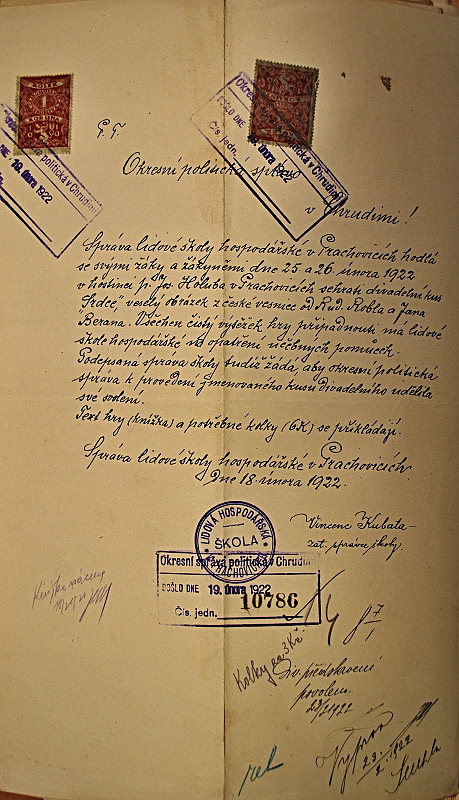 KOLEK
1
KORUNA
Okresní správa politická v Chrudimi
DOŠLO DNE 19. února 1922
Čís. jedn.
Okresní správa politická v Chrudimi
DOŠLO DNE 19. února 1922
Čís. jedn.
Okresní politická správo
v Chrudimi!
Správa lidové školy hospodářské v Prachovicích hodlá
se svými žáky a žákyněmi dne 25 a 26 února 1922
v hostinci p. Jos. Holuba v Prachovicích sehrati divadelní kus
"Srdce", veselý obrázek z české vesnice od Rud. Robla a Jana
Berana. Všechen čistý výtěžek hry připadnouti má lidové
škole hospodářské na opatření učebných pomůcek.
Podepsaná správa školy tudíž žádá, aby okresní politická
správa k provedení jmenovaného kusu divadelního udělila
své svolení.
Text hry (knížka) a potřebné kolky (6K) se přikládají.
Správa lidové školy hospodářské v Prachovicích
Dne 18. února 1922.
Vincenc Kubata
zat. správce školy.
LIDOVÁ HOSPODÁŘSKÁ
ŠKOLA
V PRACHOVICÍCH
Okresní správa politická v Chrudimi
DOŠLO DNE 19. února 1922
Čís. jedn. 10786
Kolky na 3 Kč.
Div. představení
povoleno
23/2 1922
23.
2. 1922